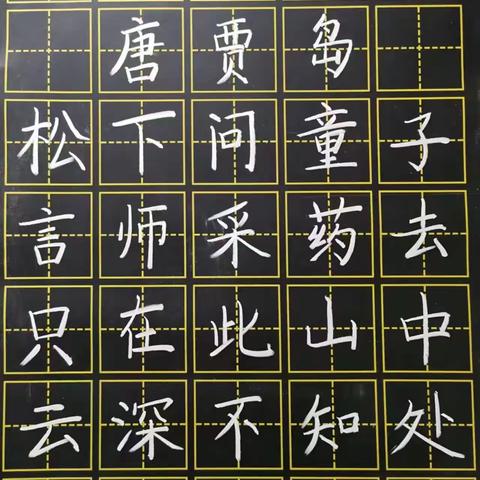 唐贾岛
松下问童子
言师采药去
只在此山中
云深不知处